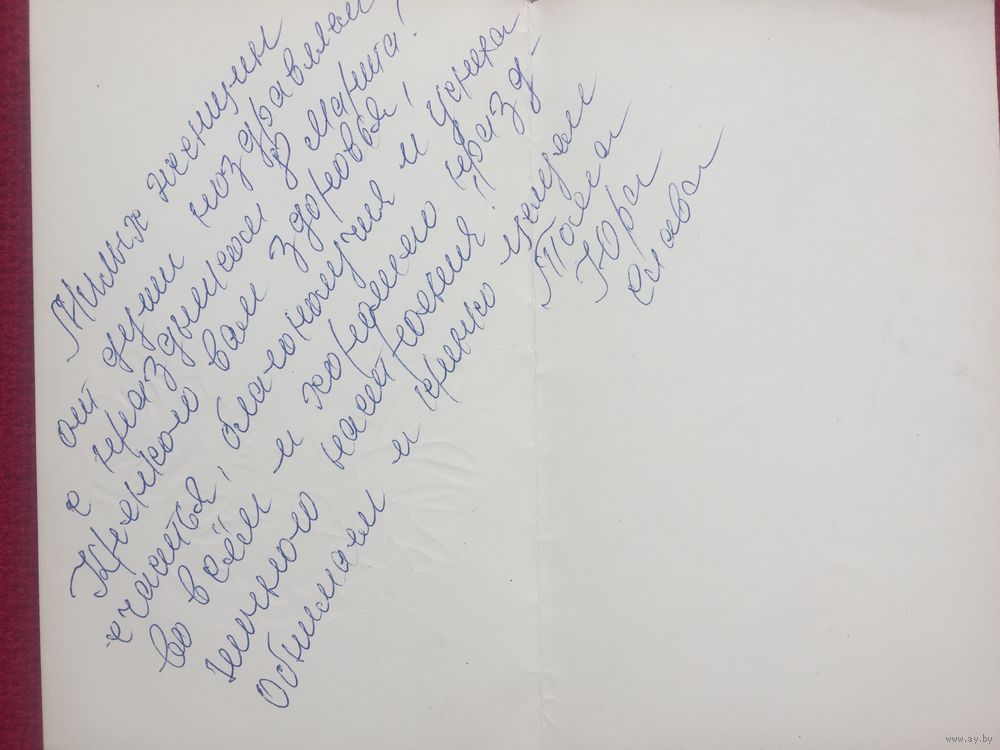 Милых женщин
от души поздравляем
с праздником 8 марта!
Крепкого вам здоровья!
счастья, благополучия и успеха
во всём и хорошего празд-
ничного настроения!!
Обнимаем и крепко целуем
Поля
Юра
Слава
www.ay.by